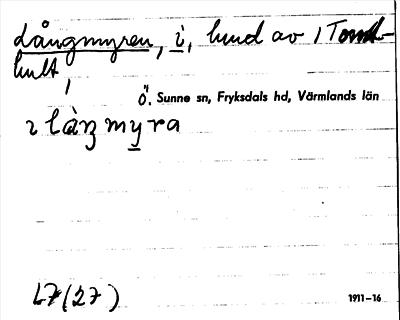 Långmyren, i, hund av 1 Tomt-
hult,
Ö. Sunne sn, Fryksdals hd, Värmlands län
2 làŋmyra
L7(27)
1911–16